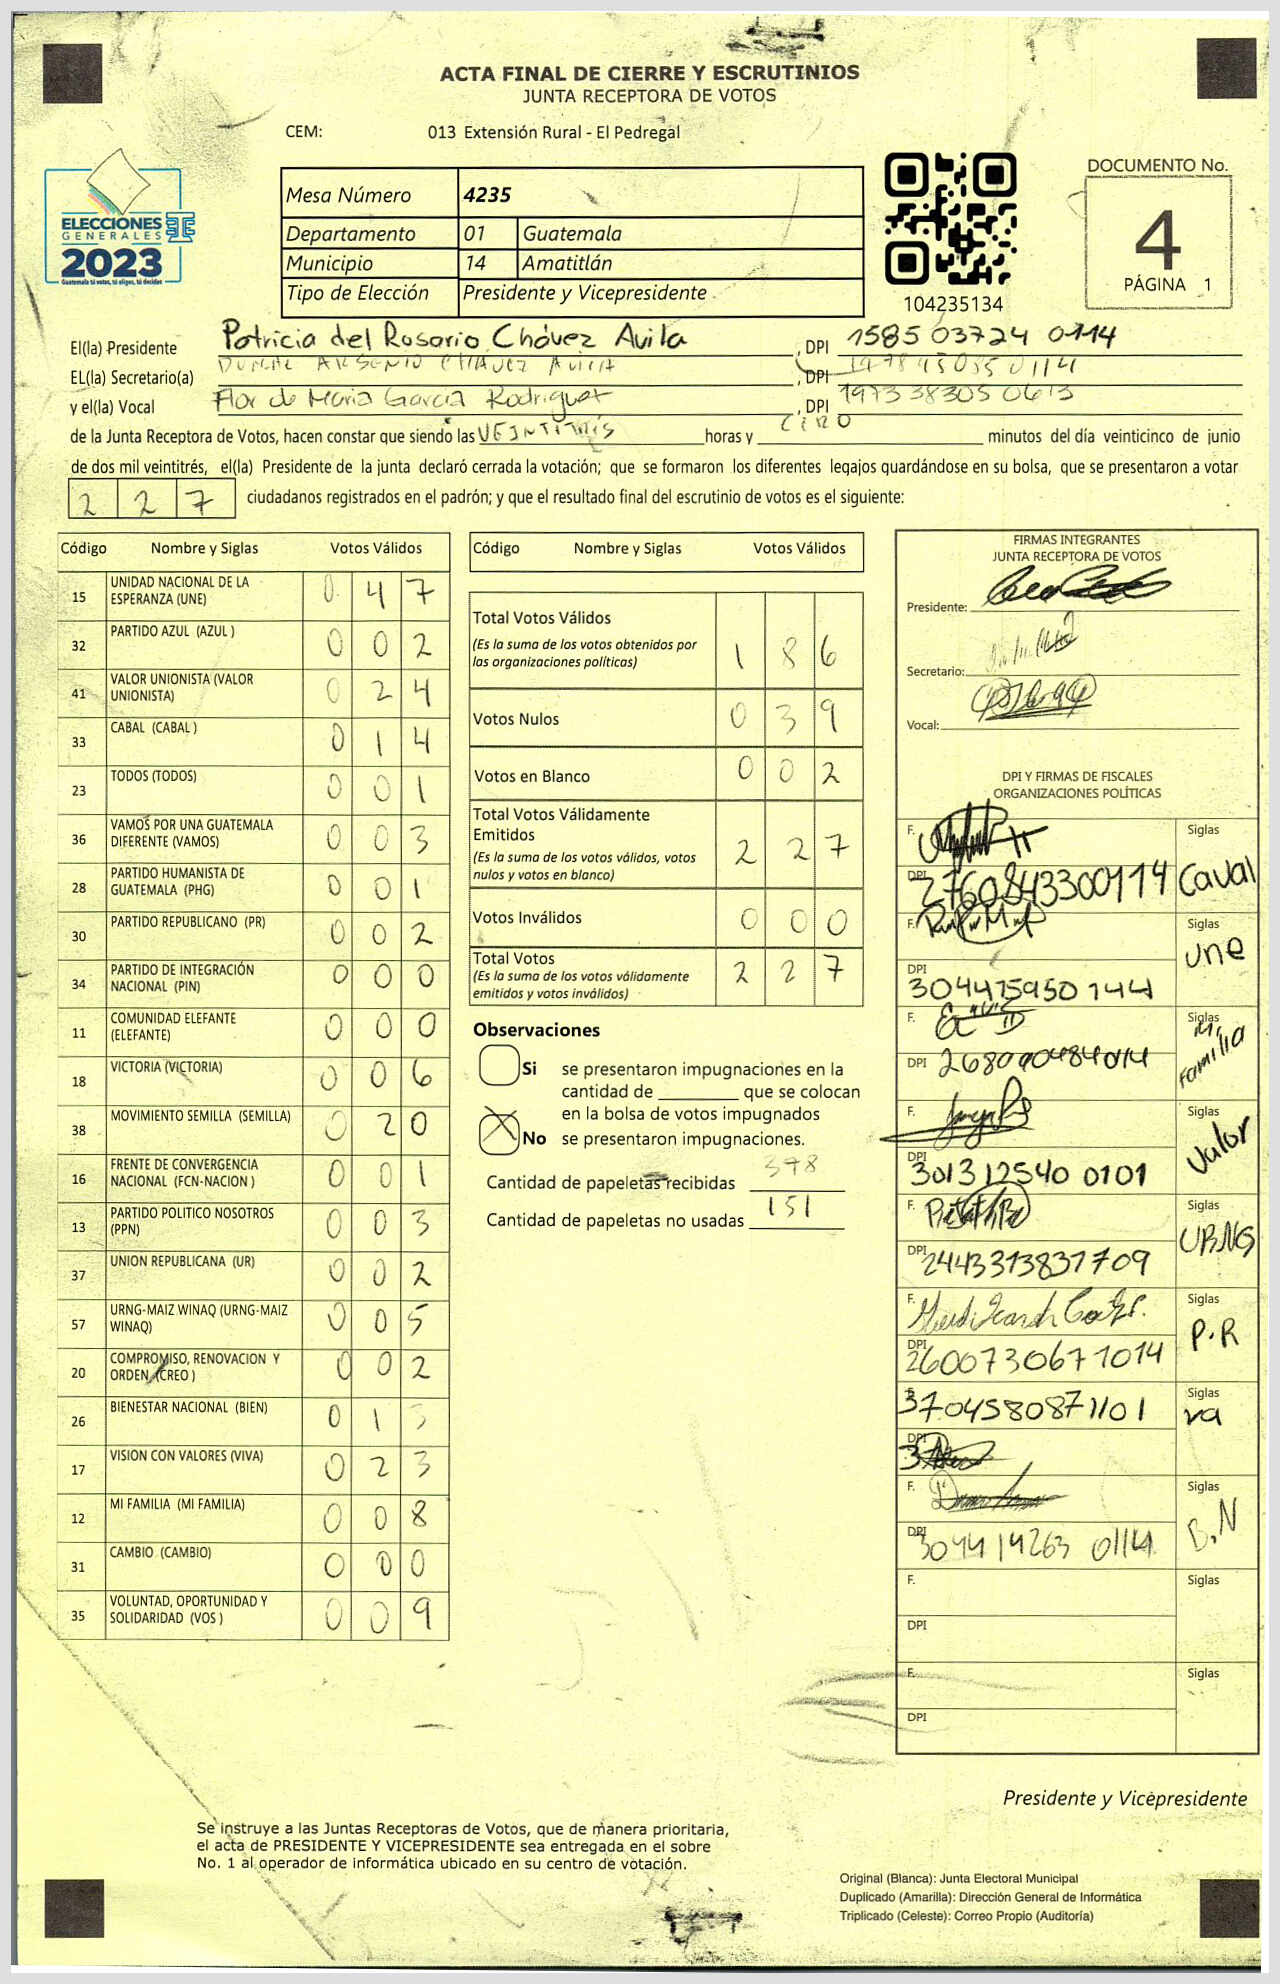 ACTA FINAL DE CIERRE Y ESCRUTINIOS
JUNTA RECEPTORA DE VOTOS
CEM: 013 Extensión Rural - El Pedregal
ELECCIONES
GENERALES
2023
Guatemala tú votas, tú eliges, tú decides
TSE
Mesa Número 4235
Departamento 01 Guatemala
Municipio 14 Amatitlán
Tipo de Elección Presidente y Vicepresidente
104235134
DOCUMENTO No.
4
PÁGINA 1
El(la) Presidente Patricia del Rosario Chávez Avila , DPI 1585 03724 0114
EL(la) Secretario(a) ARSENIO CHÁVEZ AVILA , DPI
y el(la) Vocal Flor de Maria García Rodriguez , DPI 1973 38305 0613
de la Junta Receptora de Votos, hacen constar que siendo las VEINTITRIS horas y CERO minutos del día veinticinco de junio
de dos mil veintitrés, el(la) Presidente de la junta declaró cerrada la votación; que se formaron los diferentes legajos guardándose en su bolsa, que se presentaron a votar
2 2 7 ciudadanos registrados en el padrón; y que el resultado final del escrutinio de votos es el siguiente:
Código Nombre y Siglas Votos Válidos
15 UNIDAD NACIONAL DE LA ESPERANZA (UNE) 0 4 7
32 PARTIDO AZUL (AZUL ) 0 0 2
41 VALOR UNIONISTA (VALOR UNIONISTA) 0 2 4
33 CABAL (CABAL ) 0 1 4
23 TODOS (TODOS) 0 0 1
36 VAMOS POR UNA GUATEMALA DIFERENTE (VAMOS) 0 0 3
28 PARTIDO HUMANISTA DE GUATEMALA (PHG) 0 0 1
30 PARTIDO REPUBLICANO (PR) 0 0 2
34 PARTIDO DE INTEGRACIÓN NACIONAL (PIN) 0 0 0
11 COMUNIDAD ELEFANTE (ELEFANTE) 0 0 0
18 VICTORIA (VICTORIA) 0 0 6
38 MOVIMIENTO SEMILLA (SEMILLA) 0 2 0
16 FRENTE DE CONVERGENCIA NACIONAL (FCN-NACION ) 0 0 1
13 PARTIDO POLITICO NOSOTROS (PPN) 0 0 3
37 UNION REPUBLICANA (UR) 0 0 2
57 URNG-MAIZ WINAQ (URNG-MAIZ WINAQ) 0 0 5
20 COMPROMISO, RENOVACION Y ORDEN (CREO ) 0 0 2
26 BIENESTAR NACIONAL (BIEN) 0 1 3
17 VISION CON VALORES (VIVA) 0 2 3
12 MI FAMILIA (MI FAMILIA) 0 0 8
31 CAMBIO (CAMBIO) 0 0 0
35 VOLUNTAD, OPORTUNIDAD Y SOLIDARIDAD (VOS ) 0 0 9
Código Nombre y Siglas Votos Válidos
Total Votos Válidos 1 8 6
(Es la suma de los votos obtenidos por
las organizaciones políticas)
Votos Nulos 0 3 9
Votos en Blanco 0 0 2
Total Votos Válidamente
Emitidos 2 2 7
(Es la suma de los votos válidos, votos
nulos y votos en blanco)
Votos Inválidos 0 0 0
Total Votos 2 2 7
(Es la suma de los votos válidamente
emitidos y votos inválidos)
Observaciones
Si se presentaron impugnaciones en la
cantidad de ________ que se colocan
en la bolsa de votos impugnados
No se presentaron impugnaciones.
Cantidad de papeletas recibidas 378
Cantidad de papeletas no usadas 151
FIRMAS INTEGRANTES
JUNTA RECEPTORA DE VOTOS
Presidente:
Secretario:
Vocal:
DPI Y FIRMAS DE FISCALES
ORGANIZACIONES POLÍTICAS
F. Siglas
DPI 2760843300114 Caval
F. Siglas
DPI 304415950 144 une
F. Siglas
DPI 268090484014 Mi familia
F. Siglas
DPI 301312540 0101 Valor
F. Siglas
DPI 2443313831709 URNG
F. Siglas
DPI 2600730671014 P.R
3704580871101 Siglas
DPI va
F. Siglas
DPI 3044 14263 0114 B.N
F. Siglas
DPI
F. Siglas
DPI
Presidente y Vicepresidente
Se instruye a las Juntas Receptoras de Votos, que de manera prioritaria,
el acta de PRESIDENTE Y VICEPRESIDENTE sea entregada en el sobre
No. 1 al operador de informática ubicado en su centro de votación.
Original (Blanca): Junta Electoral Municipal
Duplicado (Amarilla): Dirección General de Informática
Triplicado (Celeste): Correo Propio (Auditoría)